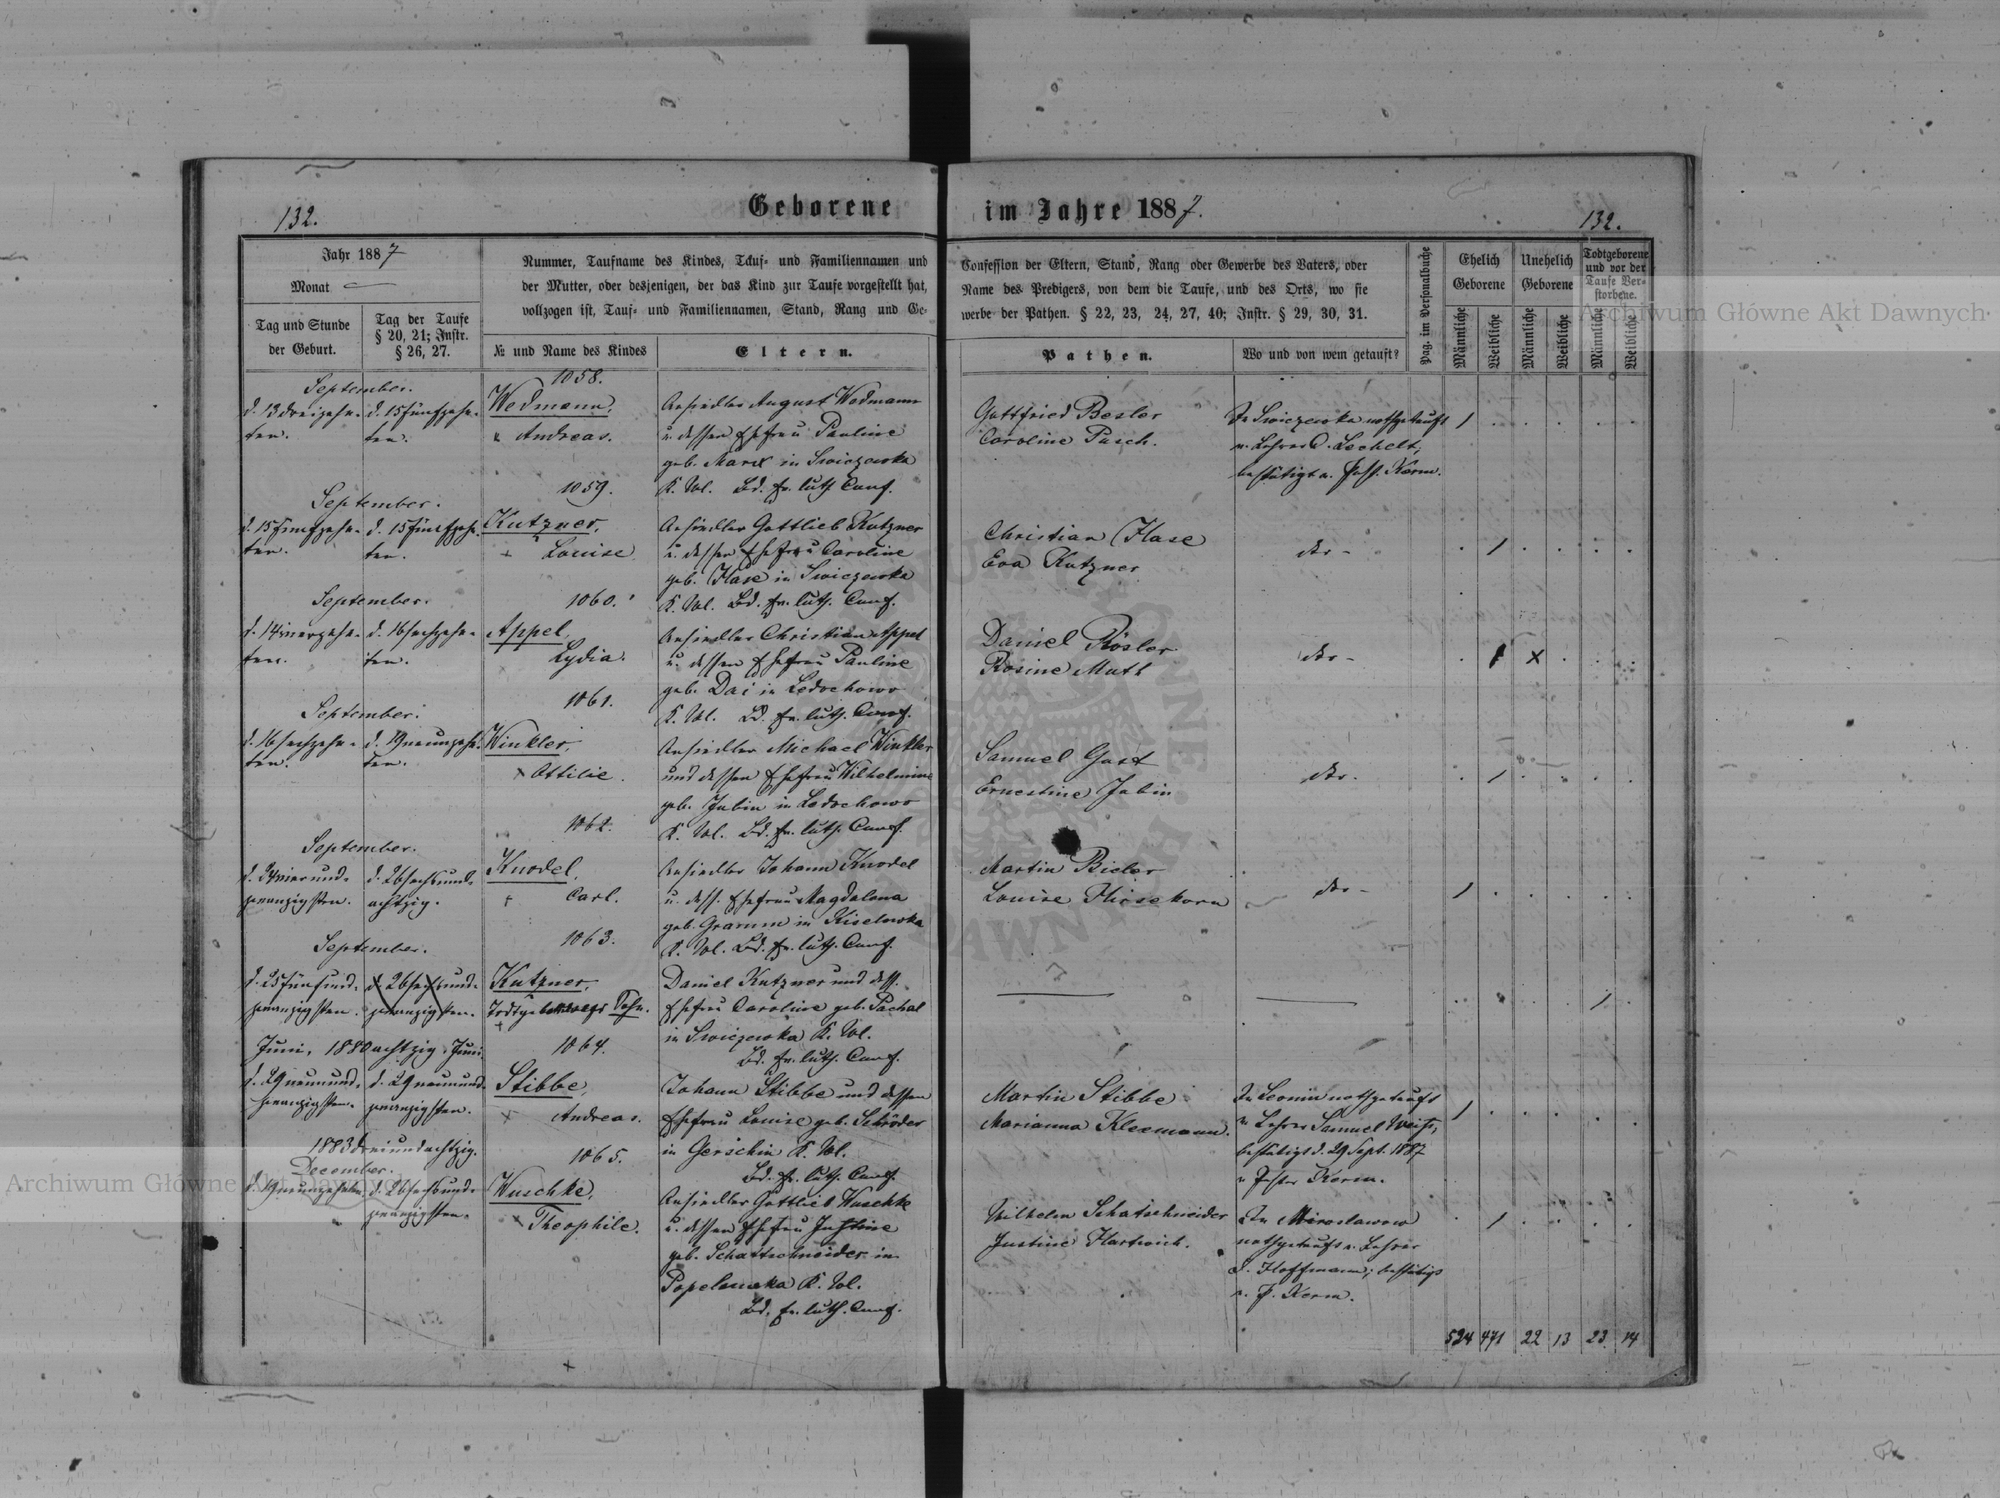 132.
Geborene
im Jahre 1887.
132.
Jahr 1887
Monat
Tag und Stunde
der Geburt.
Tag der Taufe
§ 20, 21; Instr.
§ 26, 27.
Nummer, Taufname des Kindes, Tauf- und Familiennamen und
der Mutter, oder desjenigen, der das Kind zur Taufe vorgestellt hat,
vollzogen ist, Tauf- und Familiennamen, Stand, Rang und Ge-
№ und Name des Kindes
Eltern.
Confession der Eltern, Stand, Rang oder Gewerbe des Vaters, oder
Name des Predigers, von dem die Taufe, und des Orts, wo sie
werbe der Pathen. § 22, 23, 24, 27, 40; Instr. § 29, 30, 31.
Pathen.
Wo und von wem getauft?
Pag. im Personalbuche
Ehelich
Geborene
Unehelich
Geborene
Todtgeborene
und vor der
Taufe Ver-
storbene.
Männliche
Weibliche
Männliche
Weibliche
Männliche
Weibliche
September.
d. 13 dreizehn-
ten.
d. 15 fünfzehn-
ten.
1058.
Wedmann,
Andreas.
Ansiedler August Wedmann
u. dessen Ehefrau Pauline
geb. Marx in Swiczewka
K. Wol. Bd. ev. luth. Conf.
Gottfried Besler
Caroline Pasch.
In Swiczewka nothgetauft
v. Lehrer D. Lechelt,
bestätigt v. Past. Kerm.
1
September.
d. 15 fünfzehn-
ten.
d. 15 fünfzehn-
ten.
1059.
Kutzner,
Louise
Ansiedler Gottlieb Kutzner
u. dessen Ehefrau Caroline
geb. Hase in Swiczewka
K. Wol. Bd. ev. luth. Conf.
Christian Hase
Eva Kutzner
dto-
1
September.
d. 14 vierzehn-
ten.
d. 16 sechzehn-
ten.
1060.
Appel,
Lydia.
Ansiedler Christian Appel
u. dessen Ehefrau Pauline
geb. Dai in Ledochowo
K. Wol. Bd. ev. luth. Conf.
Daniel Rösler
Rosine Muth
dto-
1 x
September.
d. 16 sechzehn-
ten.
d. 19 neunzehn-
ten.
1061.
Winkler,
Ottilie.
Ansiedler Michael Winkler
und dessen Ehefrau Wilhelmine
geb. Jabin in Ledochowo
K. Wol. Bd. ev. luth. Conf.
Samuel Gast
Ernestine Jabin
dto-
1
September.
d. 24 vierund-
zwanzigsten.
d. 26 sechsund-
achtzig.
1062.
Knodel,
Carl.
Ansiedler Johann Knodel
u. dess. Ehefrau Magdalena
geb. Gramm in Kiselewka
K. Wol. Bd. ev. luth. Conf.
Martin Bieler
Louise Hirsekorn
dto-
1
September.
d. 25 fünfund-
zwanzigsten.
d. 26 sechsund-
zwanzigsten.
1063.
Kutzner,
Todtgeborener Sohn.
Daniel Kutzner und dess.
Ehefrau Caroline geb. Pachal
in Swiczewka K. Wol.
Bd. ev. luth. Conf.
1
Juni, 1880 achtzig. Juni
d. 29 neunund-
zwanzigsten.
d. 29 neunund-
zwanzigsten.
1064.
Stibbe,
Andreas.
Johann Stibbe und dessen
Ehefrau Louise geb. Schröder
in Gerschin K. Wol.
Bd. ev. luth. Conf.
Martin Stibbe
Marianna Kleemann.
In Leonin nothgetauft
v. Lehrer Samuel Weiss,
bestätigt d. 29 Sept. 1887
v. Pastor Kerm.
1
1883 dreiundachtzig.
December.
d. 19 neunzehnten
d. 26 sechsund-
zwanzigsten.
1065.
Wuschke,
Theophile.
Ansiedler Gottlieb Wuschke
u. dessen Ehefrau Justine
geb. Schattschneider in
Popelewka K. Wol.
Bd. ev. luth. Conf.
Wilhelm Schatschneider
Justine Hartwich.
In Miroslawow
nothgetauft v. Lehrer
J. Hoffmann; bestätigt
v. P. Kerm.
1
524 471 22 13 23 14
Archiwum Główne Akt Dawnych
Archiwum Główne Akt Dawnych